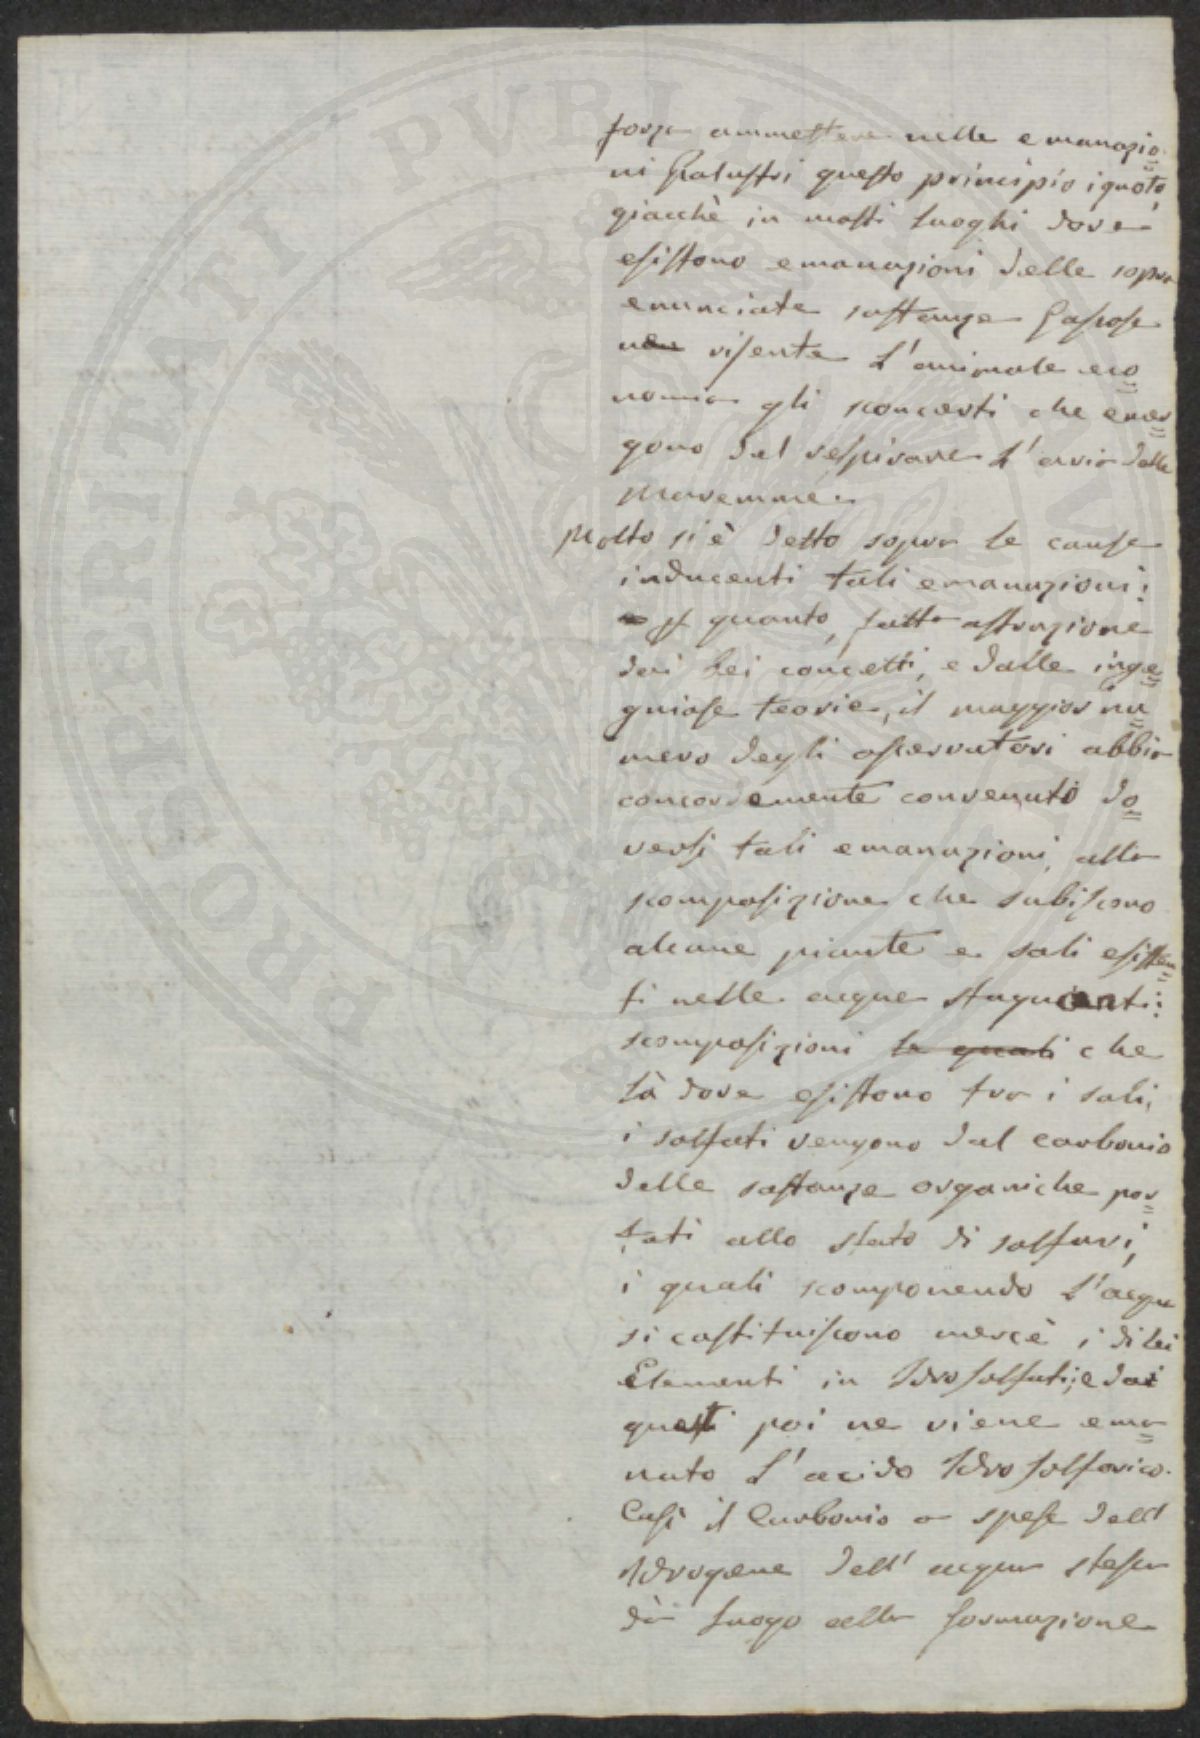 PROSPERITATI PVBLICAE
forza ammettere nelle emanazio=
ni Palustri questo principio ignoto,
giacchè in molti luoghi dove
esistono emanazioni delle sopra
enunciate sostanze Gasose
non risente l'animale eco=
nomia gli sconcerti che emer=
gono dal respirare l'aria delle
Maremme.
Molto si è detto sopra le cause
inducenti tali emanazioni:
quanto, fatta astrazione
dai bei concetti, e dalle inge=
gniose teorie, il maggior nu=
mero degli osservatori abbia
concordemente convenuto do=
versi tali emanazioni alla
scomposizione che subiscono
alcune piante e sali esisten=
ti nelle acque stagnanti:
scomposizioni le quali che
là dove esistono tra i sali,
i solfati vengono dal carbonio
delle sostanze organiche por=
tati allo stato di solfuri,
i quali scomponendo l'acqua
si costituiscono mercè i di lei
Elementi in Idrosolfati; e dai
questi poi ne viene ema=
nato l'acido Idrosolforico.
Così il Carbonio a spese dell'
Idrogene dell'acqua stessa
dà luogo alla formazione